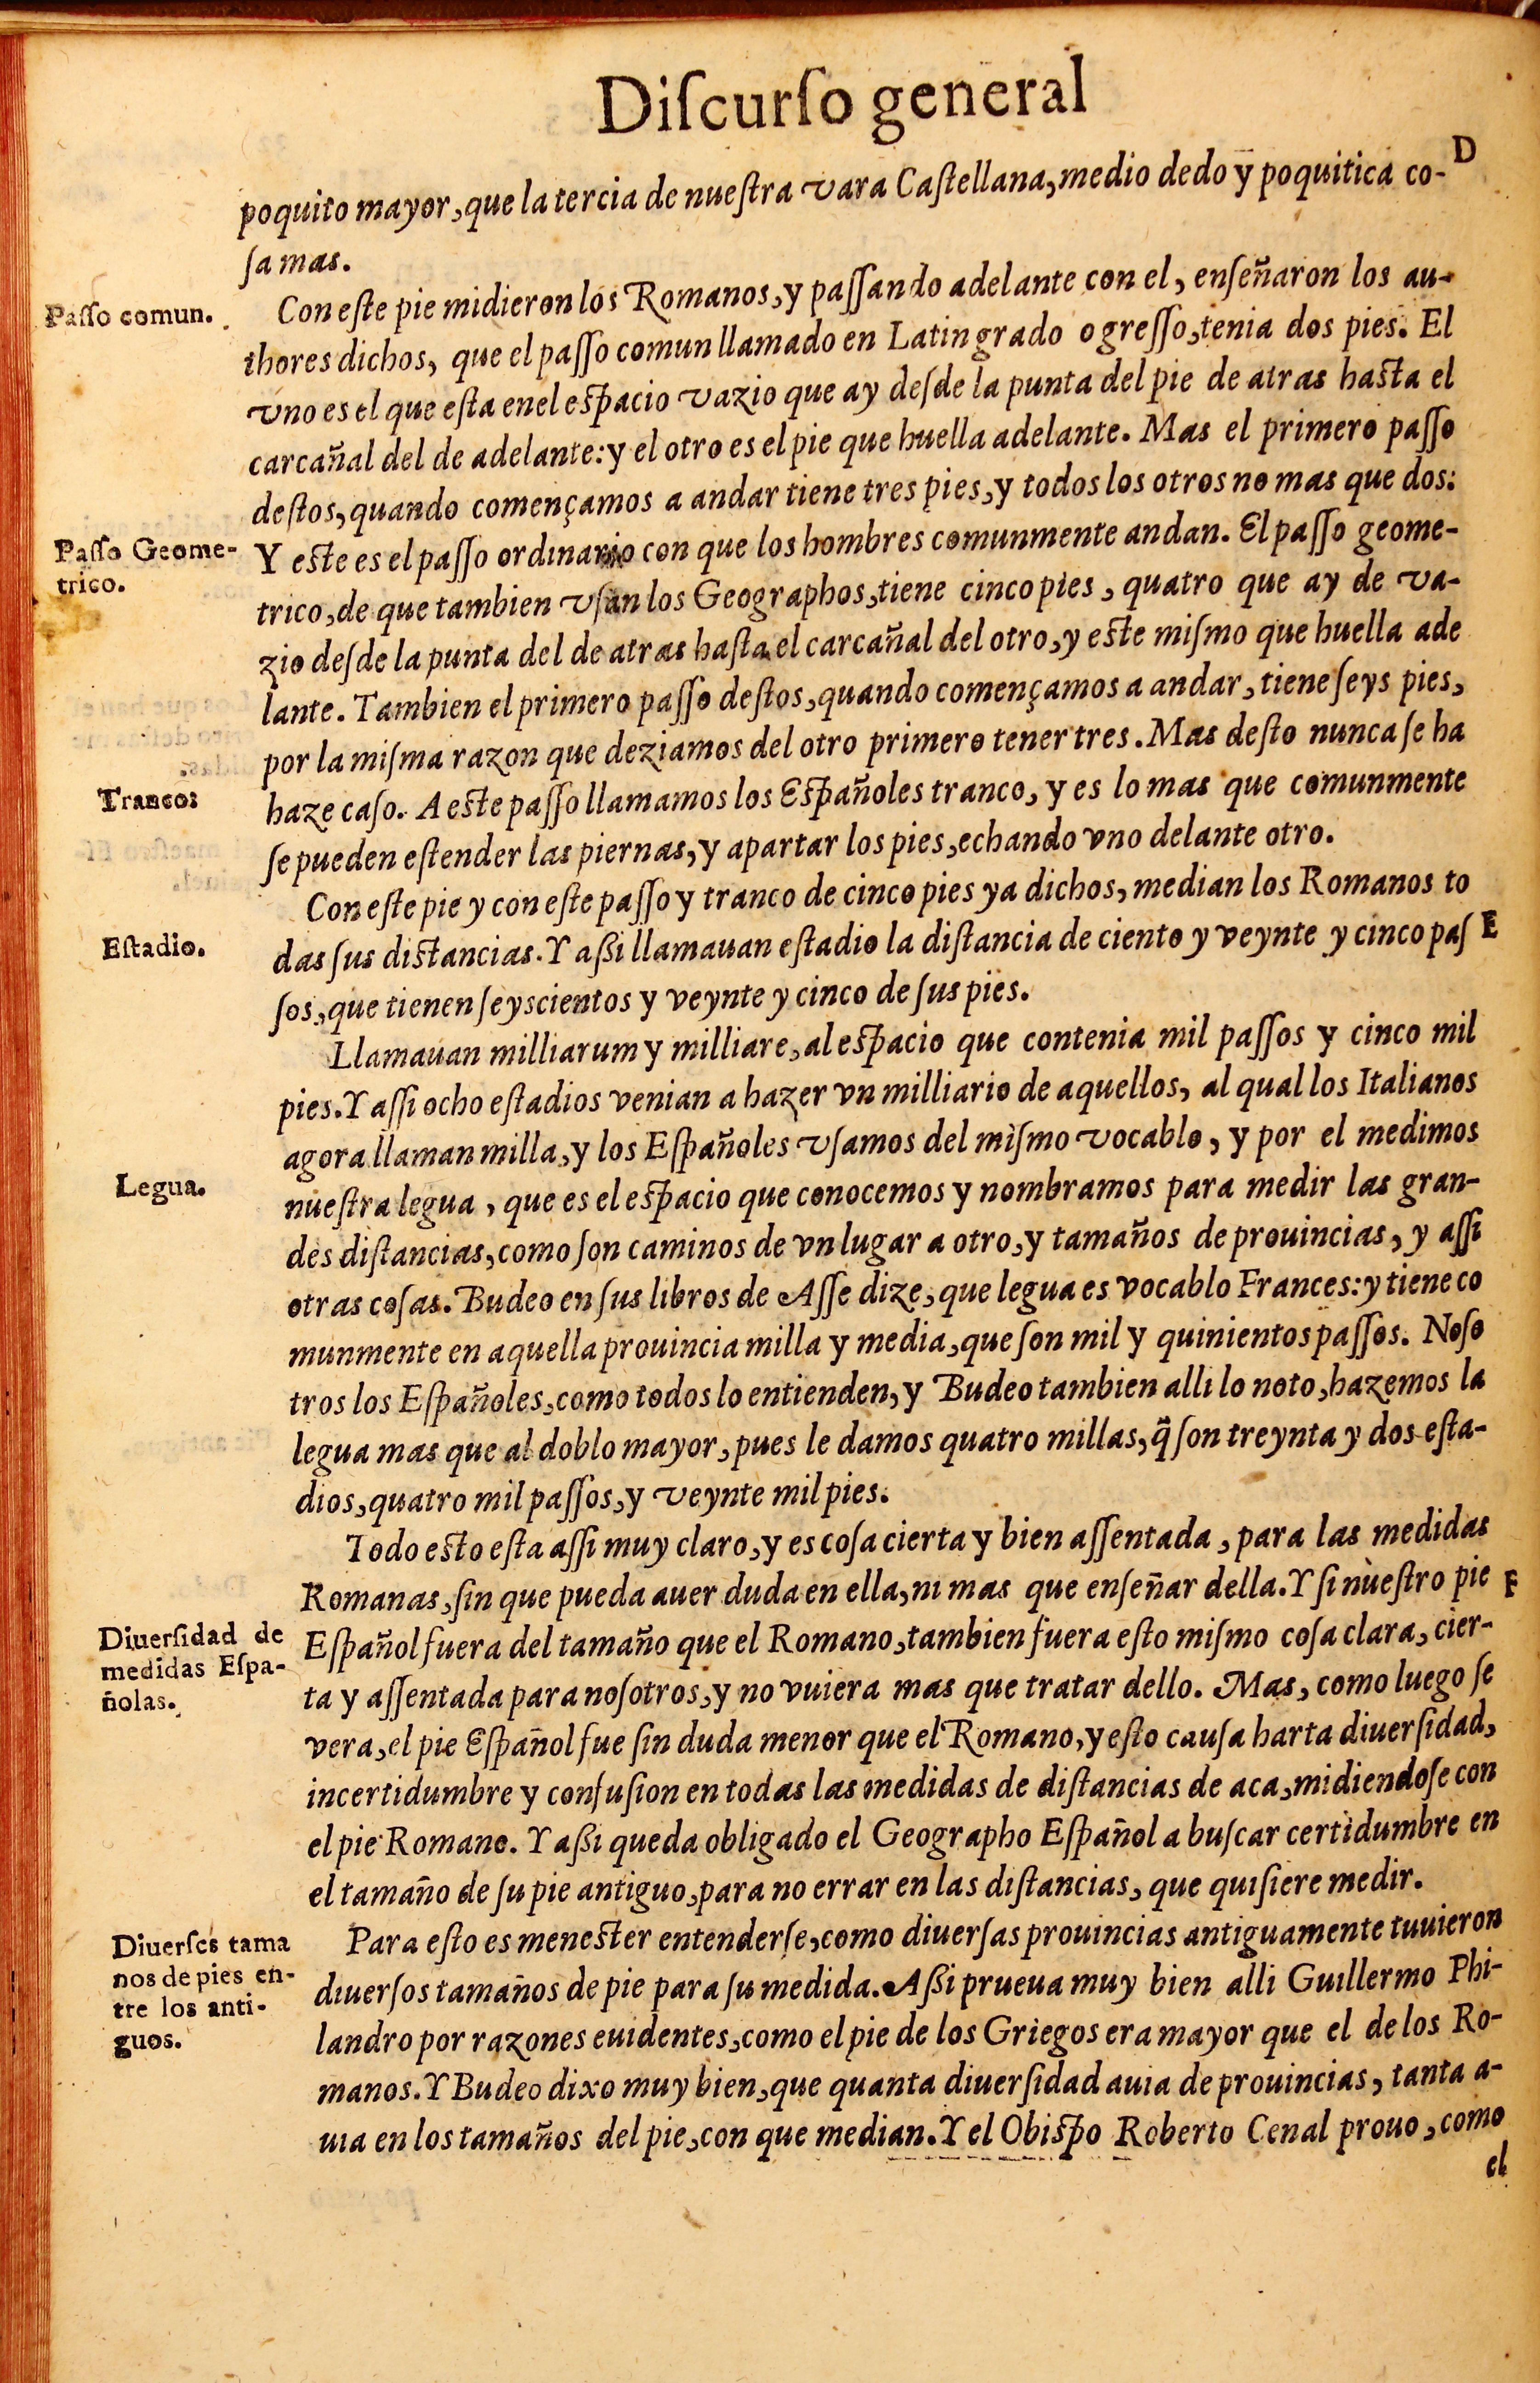 Diſcurſo general
D
poquito mayor, que la tercia de nueſtra vara Caſtellana, medio dedo y poquitica co-
ſa mas.
Paſſo comun.
Con eſte pie midieron los Romanos, y paſſando adelante con el, enſeñaron los au-
thores dichos, que el paſſo comun llamado en Latin grado o greſſo, tenia dos pies. El
vno es el que eſta enel eſpacio vazio que ay deſde la punta del pie de atras haſta el
carcañal del de adelante: y el otro es el pie que huella adelante. Mas el primero paſſo
deſtos, quando començamos a andar tiene tres pies, y todos los otros no mas que dos:
Paſſo Geome-
trico.
Y eſte es el paſſo ordinario con que los hombres comunmente andan. El paſſo geome-
trico, de que tambien vſan los Geographos, tiene cinco pies, quatro que ay de va-
zio deſde la punta del de atras haſta el carcañal del otro, y eſte miſmo que huella ade
lante. Tambien el primero paſſo deſtos, quando començamos a andar, tiene ſeys pies,
por la miſma razon que deziamos del otro primero tener tres. Mas deſto nunca ſe ha
Tranco:
haze caſo. A eſte paſſo llamamos los Eſpañoles tranco, y es lo mas que comunmente
ſe pueden eſtender las piernas, y apartar los pies, echando vno delante otro.
Con eſte pie y con eſte paſſo y tranco de cinco pies ya dichos, median los Romanos to
Eſtadio.
das ſus diſtancias. Y aßi llamauan eſtadio la diſtancia de ciento y veynte y cinco paſ
E
ſos, que tienen ſeyscientos y veynte y cinco de ſus pies.
Llamauan milliarum y milliare, al eſpacio que contenia mil paſſos y cinco mil
pies. Y aſſi ocho eſtadios venian a hazer vn milliario de aquellos, al qual los Italianos
agora llaman milla, y los Eſpañoles vſamos del miſmo vocablo, y por el medimos
Legua.
nueſtra legua, que es el eſpacio que conocemos y nombramos para medir las gran-
des diſtancias, como ſon caminos de vn lugar a otro, y tamaños de prouincias, y aſſi
otras coſas. Budeo en ſus libros de Aſſe dize, que legua es vocablo Frances: y tiene co
munmente en aquella prouincia milla y media, que ſon mil y quinientos paſſos. Noſo
tros los Eſpañoles, como todos lo entienden, y Budeo tambien alli lo noto, hazemos la
legua mas que al doblo mayor, pues le damos quatro millas, q̃ ſon treynta y dos eſta-
dios, quatro mil paſſos, y veynte mil pies.
Todo eſto eſta aſſi muy claro, y es coſa cierta y bien aſſentada, para las medidas
Romanas, ſin que pueda auer duda en ella, ni mas que enſeñar della. Y ſi nueſtro pie
F
Diuerſidad de
medidas Eſpa-
ñolas.
Eſpañol fuera del tamaño que el Romano, tambien fuera eſto miſmo coſa clara, cier-
ta y aſſentada para noſotros, y no vuiera mas que tratar dello. Mas, como luego ſe
vera, el pie Eſpañol fue ſin duda menor que el Romano, y eſto cauſa harta diuerſidad,
incertidumbre y confuſion en todas las medidas de diſtancias de aca, midiendoſe con
el pie Romano. Y aßi queda obligado el Geographo Eſpañol a buſcar certidumbre en
el tamaño de ſu pie antiguo, para no errar en las diſtancias, que quiſiere medir.
Diuerſos tama
nos de pies en-
tre los anti-
guos.
Para eſto es meneſter entenderſe, como diuerſas prouincias antiguamente tuuieron
diuerſos tamaños de pie para ſu medida. Aßi prueua muy bien alli Guillermo Phi-
landro por razones euidentes, como el pie de los Griegos era mayor que el de los Ro-
manos. Y Budeo dixo muy bien, que quanta diuerſidad auia de prouincias, tanta a-
uia en los tamaños del pie, con que median. Y el Obiſpo Roberto Cenal prouo, como
el